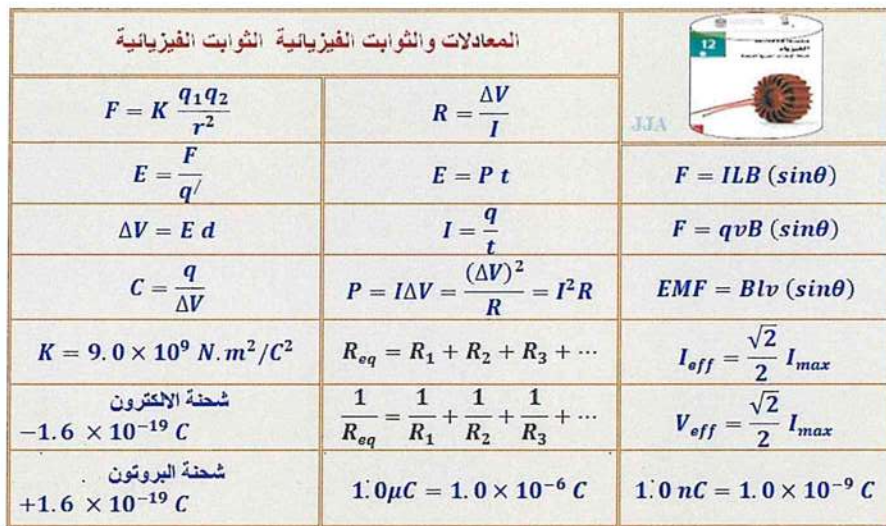 المعادلات والثوابت الفيزيائية الثوابت الفيزيائية
12
الفيزياء
JJA
F = K \frac{q_1 q_2}{r^2}
R = \frac{ΔV}{I}
E = \frac{F}{q^/}
E = P t
F = ILB (sinθ)
ΔV = E d
I = \frac{q}{t}
F = qvB (sinθ)
C = \frac{q}{ΔV}
P = IΔV = \frac{(ΔV)^2}{R} = I^2 R
EMF = Blv (sinθ)
K = 9.0 × 10^9 N.m^2/C^2
R_{eq} = R_1 + R_2 + R_3 + ⋯
I_{eff} = \frac{\sqrt{2}}{2} I_{max}
شحنة الالكترون
−1.6 × 10^{−19} C
\frac{1}{R_{eq}} = \frac{1}{R_1} + \frac{1}{R_2} + \frac{1}{R_3} + ⋯
V_{eff} = \frac{\sqrt{2}}{2} I_{max}
شحنة البروتون
+1.6 × 10^{−19} C
1.0μC = 1.0 × 10^{−6} C
1.0 nC = 1.0 × 10^{−9} C